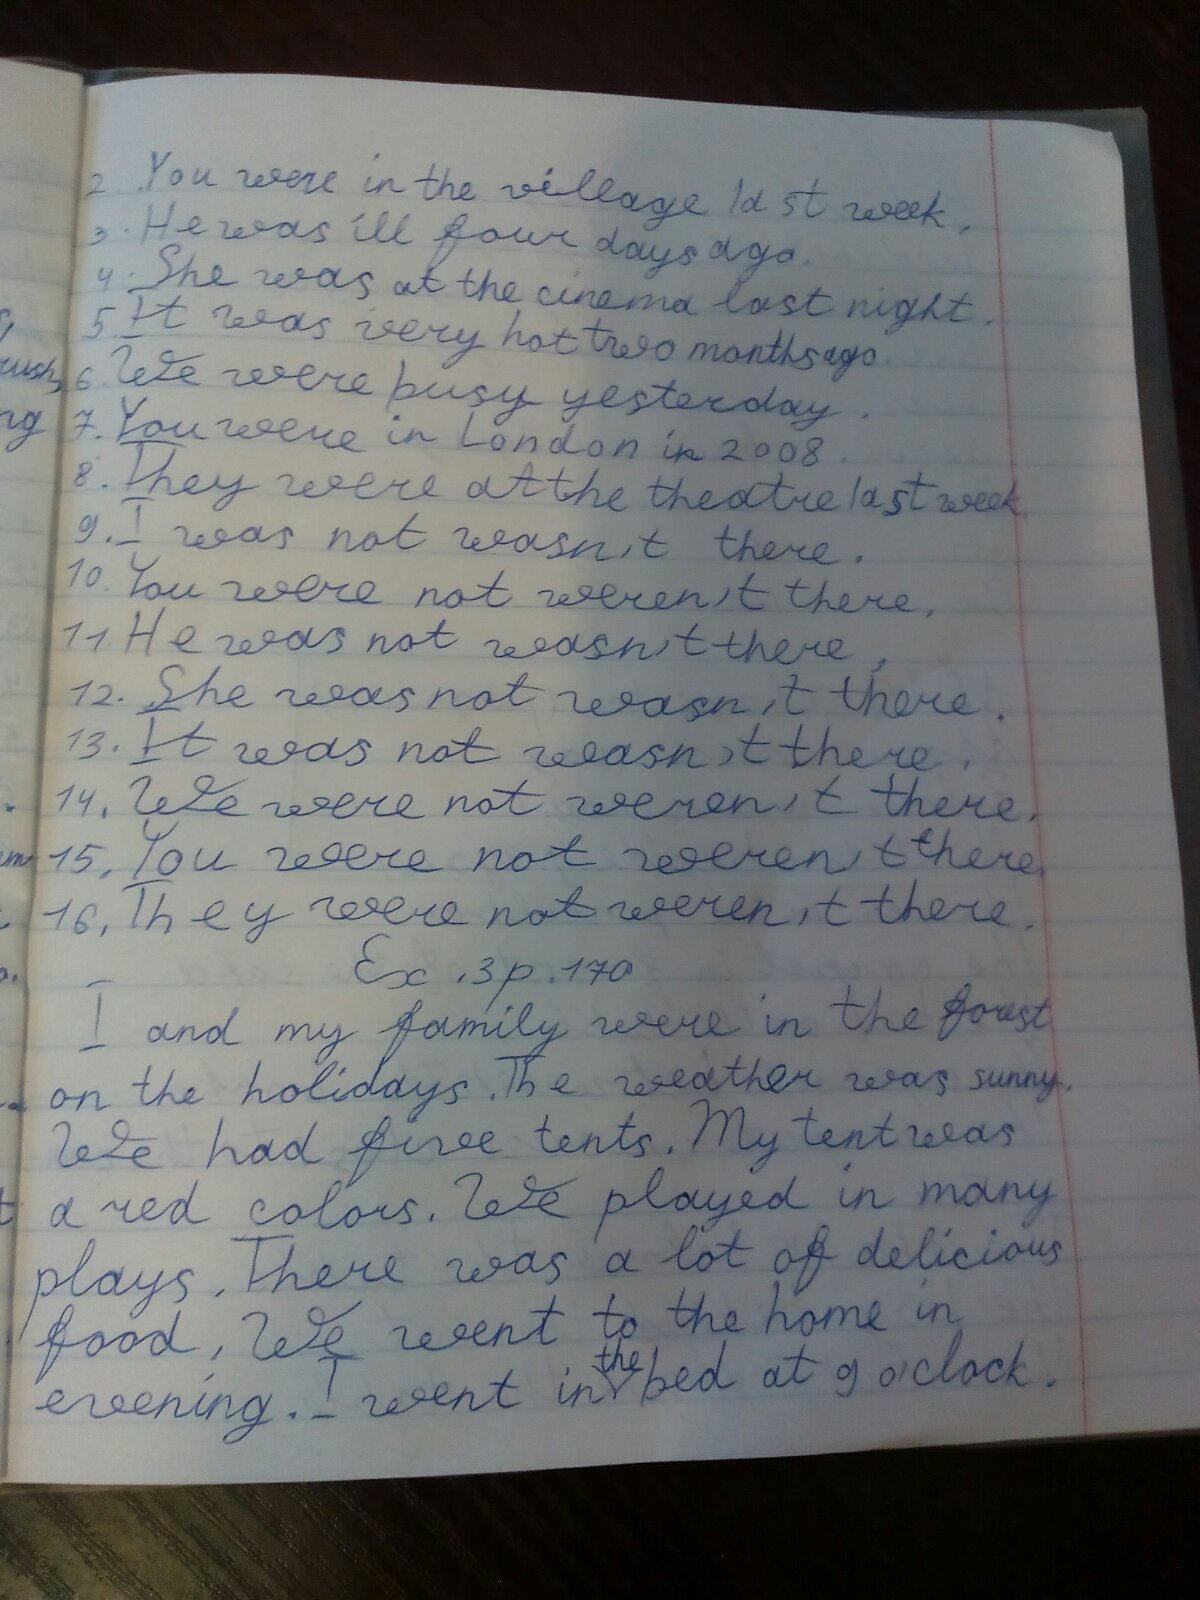 2. You were in the village last week.
3. He was ill four days ago.
4. She was at the cinema last night.
5. It was very hot two months ago.
6. We were busy yesterday.
7. You were in London in 2008.
8. They were at the theatre last week.
9. I was not wasn't there.
10. You were not weren't there.
11. He was not wasn't there.
12. She was not wasn't there.
13. It was not wasn't there.
14. We were not weren't there.
15. You were not weren't there.
16. They were not weren't there.
Ex. 3 p. 170
I and my family were in the forest
on the holidays. The weather was sunny.
We had five tents. My tent was
a red colors. We played in many
plays. There was a lot of delicious
food. We went to the home in
evening. I went in the bed at 9 o'clock.